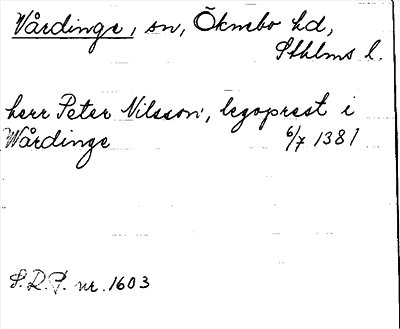 Vårdinge, sn, Öknebo hd,
Sthlms l.
herr Peter Nilsson, legoprest i
Wårdinge 6/7 1381
S.R.P. nr. 1603